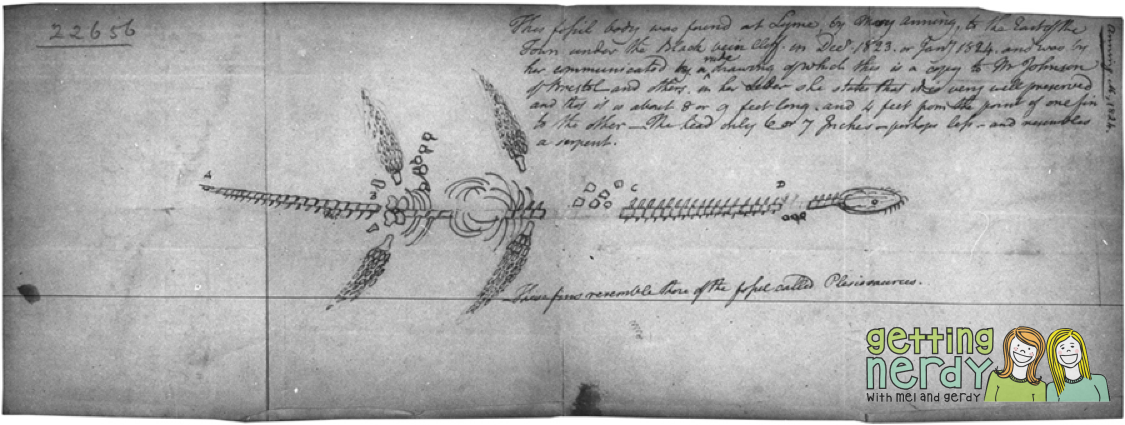 22656
This fossil body was found at Lyme, by Mary Anning, to the East of the
Town under the Black vein Cliff. in Decr. 1823. or Jany 1824. and was by
her communicated by a rude drawing of which this is a copy to Mr Johnson
of Bristol and others. in her Letter she states that it is very well preserved
and that it is about 8 or 9 feet long. and 4 feet from the point of one fin
to the other — The head only 6 or 7 Inches — perhaps less — and resembles
a serpent.
Anning M. 1824.
A
B
C
These fins resemble those of the fossil called Plesiosaurus.
getting
nerdy
with mel and gerdy